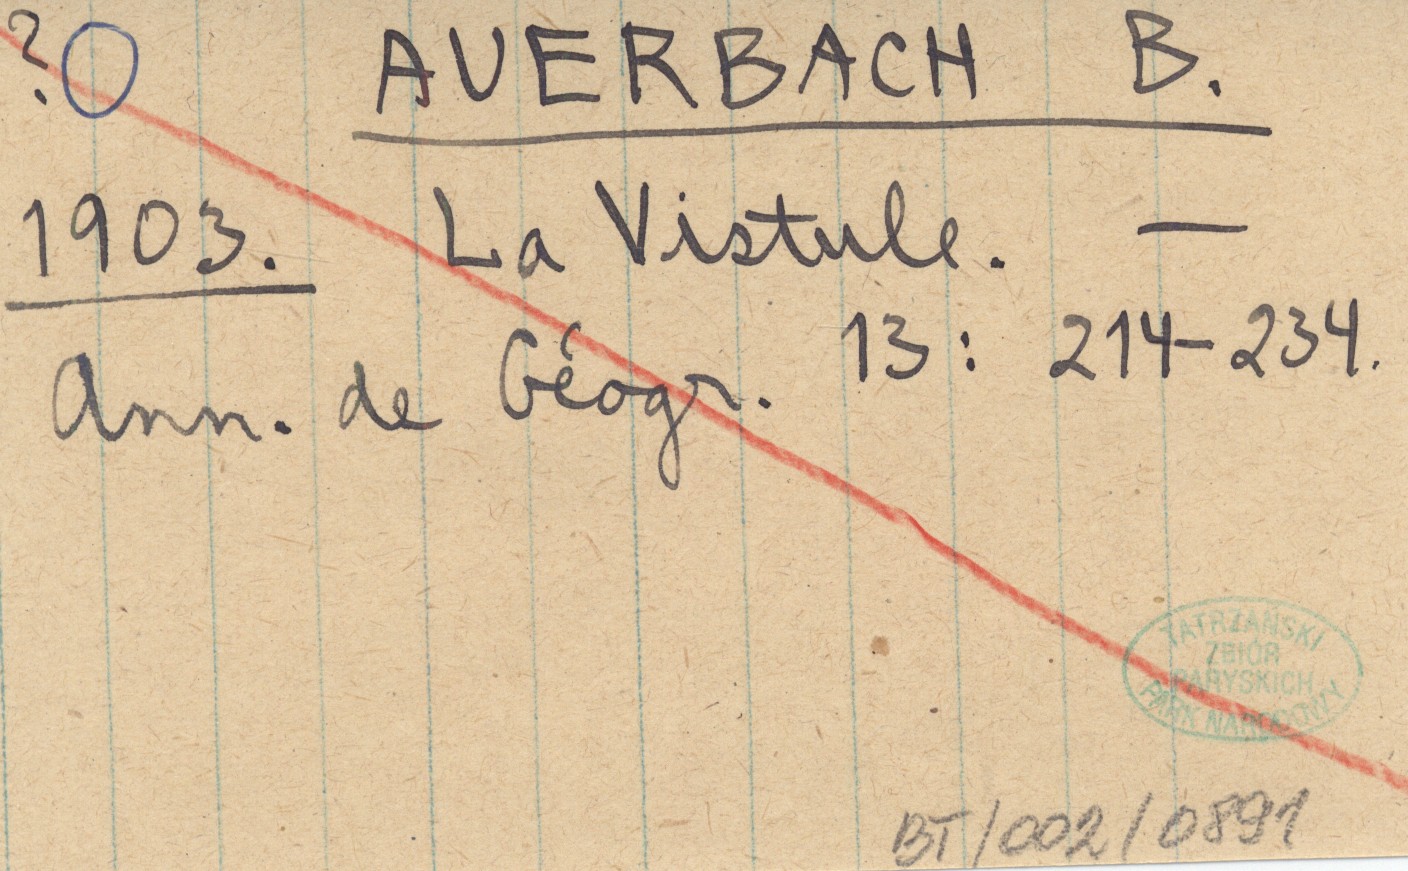 ? O AUERBACH B.
1903. La Vistule. —
Ann. de Géogr. 13: 214-234.
TATRZAŃSKI
ZBIÓR
PARYSKICH
PARK NARODOWY
BT/002/0891